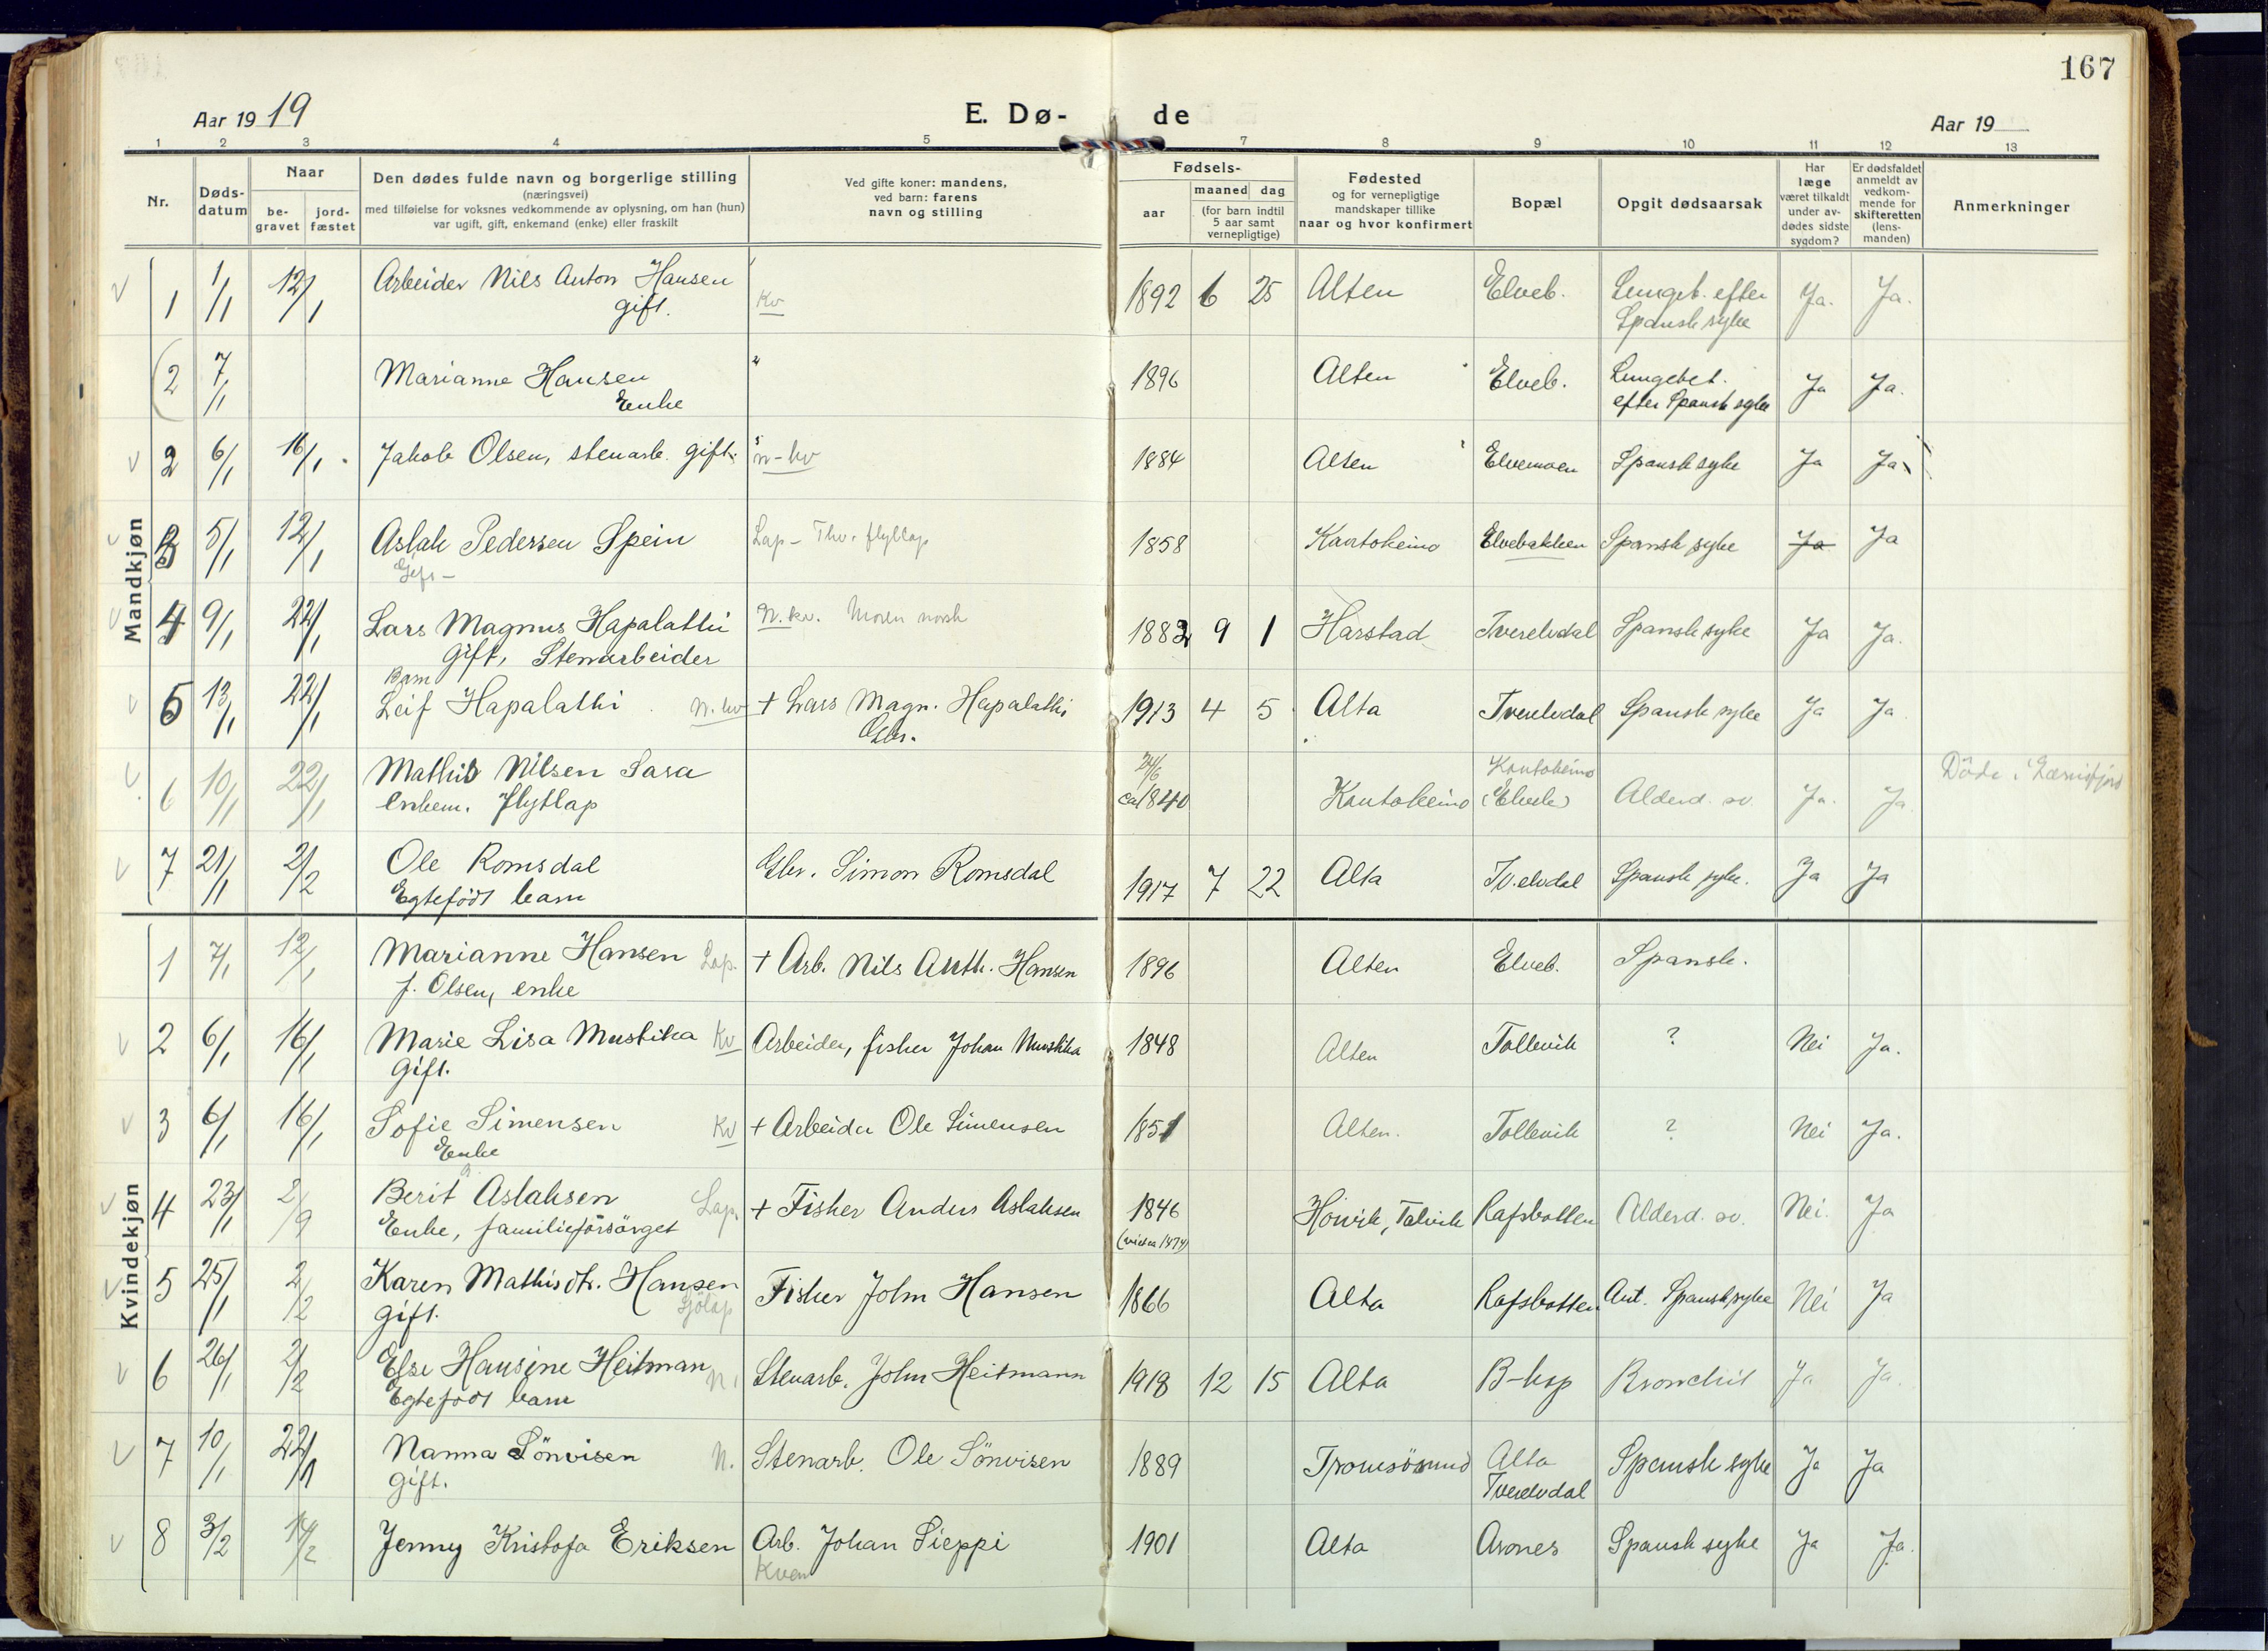 167
Aar 1919
E. Dø-
de
Aar 19
1 2 3 4 5 7 8 9 10 11 12 13
Nr.
Døds-
datum
Naar
be-
gravet
jord-
fæstet
Den dødes fulde navn og borgerlige stilling
(næringsvei)
med tilføielse for voksnes vedkommende av oplysning, om han (hun)
var ugift, gift, enkemand (enke) eller fraskilt
Ved gifte koner: mandens,
ved barn: farens
navn og stilling
Fødsels-
aar
maaned dag
(for barn indtil
5 aar samt
vernepligtige)
Fødested
og for vernepligtige
mandskaper tillike
naar og hvor konfirmert
Bopæl
Opgit dødsaarsak
Har
læge
været tilkaldt
under av-
dødes sidste
sygdom?
Er dødsfaldet
anmeldt av
vedkom-
mende for
skifteretten
(lens-
manden)
Anmerkninger
Mandkjøn
1 1/1 12/1 Arbeider Nils Anton Hansen Kv 1892 6 25 Alten Elveb. Lungeb. efter Ja. Ja.
gift. Spansk syke
(2 7/1 Marianne Hansen " 1896 Alten Elveb. Lungebet. Ja Ja.
Enke efter Spansk syke
2 6/1 16/1 Jakob Olsen, stenarb. gift. n-kv 1884 Alten Elvemoen Spansk syke Ja Ja
3 5/1 12/1 Aslak Pedersen Spein Lap- flytlap 1858 Kautokeino Elvebakken Spansk syke Ja Ja
Gift-
4 9/1 22/1 Lars Magnus Hapalathi N.kv. Moren norsk 1882 9 1 Harstad Tverelvdal Spansk syke Ja Ja.
gift, Stenarbeider
Barn
5 13/1 22/1 Leif Hapalathi n.kv + Lars Magn. Hapalathi 1913 4 5 Alta Tverelvdal Spansk syke Ja Ja
Gbr.
6 10/1 22/1 Mathis Nilsen Sara 24/6 ca 1840 Kautokeino Kautokeino (Elveb) Alderd. sv. Ja. Ja Döde i
enkem. flytlap
7 21/1 2/2 Ole Romsdal Gbr. Simon Romsdal 1917 7 22 Alta Tv.elvdal Spansk syke. Ja Ja
Egtefödt barn
Kvindekjøn
1 7/1 12/1 Marianne Hansen Lap. + Arb. Nils Anth. Hansen 1896 Alten Elveb. Spansk.
f. Olsen, enke
2 6/1 16/1 Marie Lisa Mustika Kv Arbeider, fisker Johan Mustika 1848 Alten Tollevik ? Nei Ja.
gift.
3 6/1 16/1 Sofie Simensen Kv + Arbeider Ole Simensen 1851 Alten. Tollevik ? Nei Ja.
Enke
4 23/1 2/9 Berit Aslaksen Lap. + Fisker Anders Aslaksen 1846 Talvik Rafsbotten Alderd. sv. Nei. Ja
Enke, familieforsörget
5 25/1 2/2 Karen Mathisdtr. Hansen Fisker John Hansen 1866 Alta Rafsbotten Ant. Spansk syke Nei Ja
gift. Sjölap
6 26/1 2/2 Else Hansine Heitman N. Stenarb. John Heitmann 1918 12 15 Alta B-kop Bronchit Ja Ja.
Egtefödt barn
7 10/1 22/1 Nanna Sönvisen N. Stenarb. Ole Sönvisen 1889 Tromsösund Alta Spansk syke Ja Ja
gift. Tverelvdal
8 3/2 14/2 Jenny Kristofa Eriksen Arb. Johan Sieppi 1901 Alta Arones Spansk syke Ja Ja.
Kven